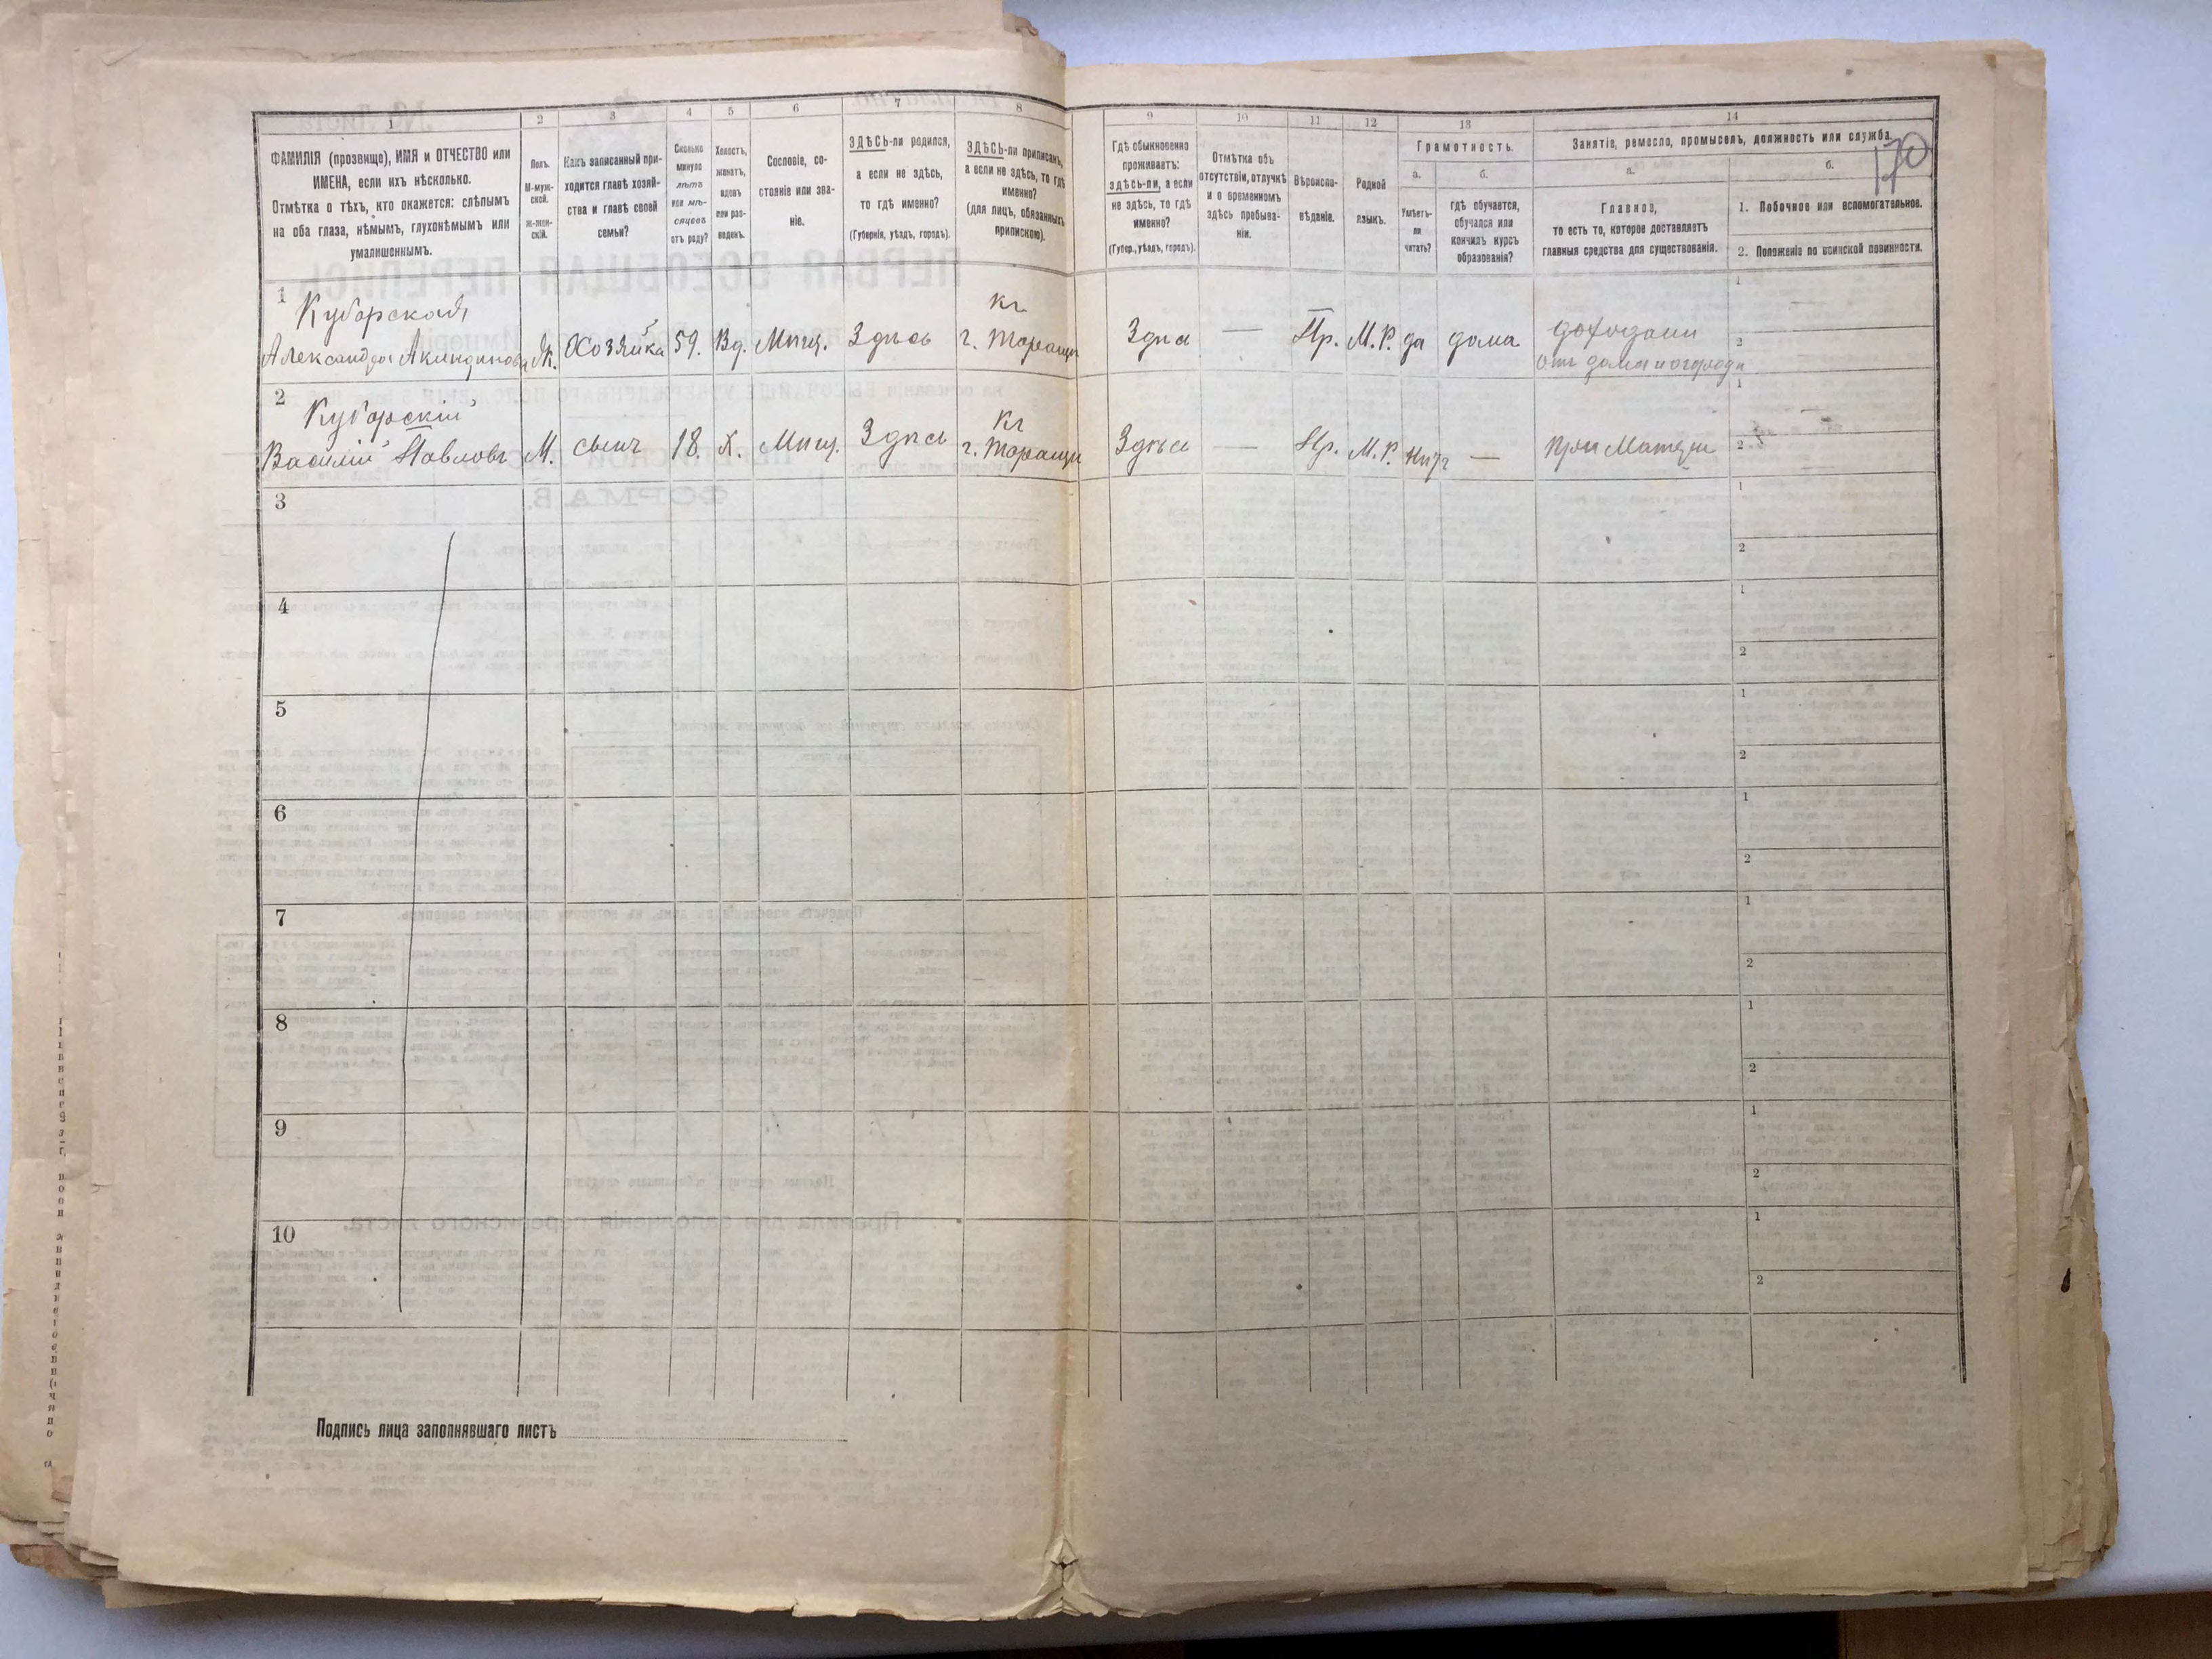 1 2 3 4 5 6 7 8 9 10 11 12 13 14
ФАМИЛІЯ (прозвище), ИМЯ и ОТЧЕСТВО или
ИМЕНА, если ихъ нѣсколько.
Отмѣтка о тѣхъ, кто окажется: слѣпымъ
на оба глаза, нѣмымъ, глухонѣмымъ или
умалишеннымъ.
Полъ.
М-муж-
ской.
Ж-жен-
скій.
Какъ записанный при-
ходится главѣ хозяй-
ства и главѣ своей
семьи?
Сколько
минуло
лѣтъ
или мѣ-
сяцевъ
отъ роду?
Холостъ,
женатъ,
вдовъ
или раз-
веденъ.
Сословіе, со-
стояніе или зва-
ніе.
ЗДѢСЬ-ли родился,
а если не здѣсь,
то гдѣ именно?
(Губернія, уѣздъ, городъ).
ЗДѢСЬ-ли приписанъ,
а если не здѣсь, то гдѣ
именно?
(для лицъ, обязанныхъ
припискою).
Гдѣ обыкновенно
проживаетъ:
здѣсь-ли, а если
не здѣсь, то гдѣ
именно?
(Губер., уѣздъ, городъ).
Отмѣтка объ
отсутствіи, отлучкѣ
и о временномъ
здѣсь пребыва-
ніи.
Вѣроиспо-
вѣданіе.
Родной
языкъ.
Грамотность.
а.
Умѣетъ-
ли
читать?
б.
гдѣ обучается,
обучался или
кончилъ курсъ
образованія?
Занятіе, ремесло, промыселъ, должность или служба.
170
а.
Главное,
то есть то, которое доставляетъ
главныя средства для существованія.
б.
1. Побочное или вспомогательное.
2. Положеніе по воинской повинности.
1
Куборская
Александра Акиндинова Ж. Хозяйка 59. Вд. Мѣщ. Здѣсь
Кг
г. Таращи
Здѣсь — Пр. М.Р. да дома доходами
отъ дома и огорода
1
2
2
Куборскій
Василій Павловъ М. сынъ 18. Х. Мѣщ. Здѣсь
Кг
г. Таращи
Здѣсь — Пр. М.Р. нѣтъ — При Матери
1
2
3
1
2
4
1
2
5
1
2
6
1
2
7
1
2
8
1
2
9
1
2
10
1
2
Подпись лица заполнявшаго листъ